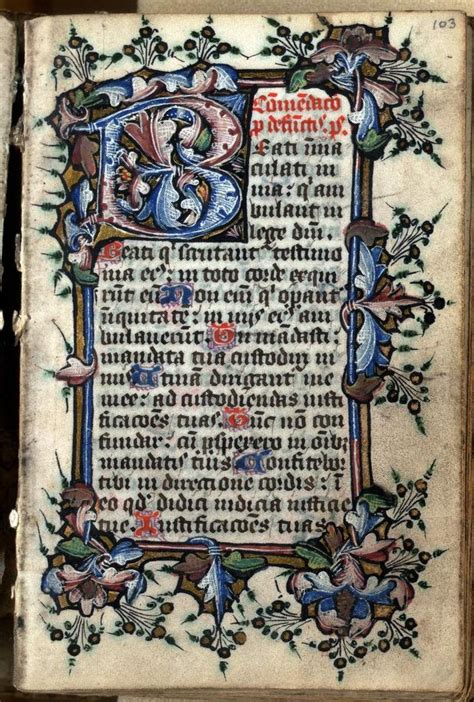 103
Cōmēdaco
p defūctꝭ. pꝭ.
Beati ima
culati in
uia: qͥ am
bulant in
lege dn̄i.
Beati qͥ scrutant testimo
nia eiꝰ: in toto corde exqui
runt eū Non em̄ qͥ opant
iniquitate: in uiis eiꝰ am
bulauerūt Tu mandasti
mandata tua custodiri ni
mis Utinā dirigant uie
mee: ad custodiendas iustifi
cacōes tuas Tūc nō con
fundar: cū pspexero in oībꝫ
mandatis tuis Confitebor
tibi in directione cordis: in
eo qd̄ didici iudicia iusticie
tue Iustificacōes tuas